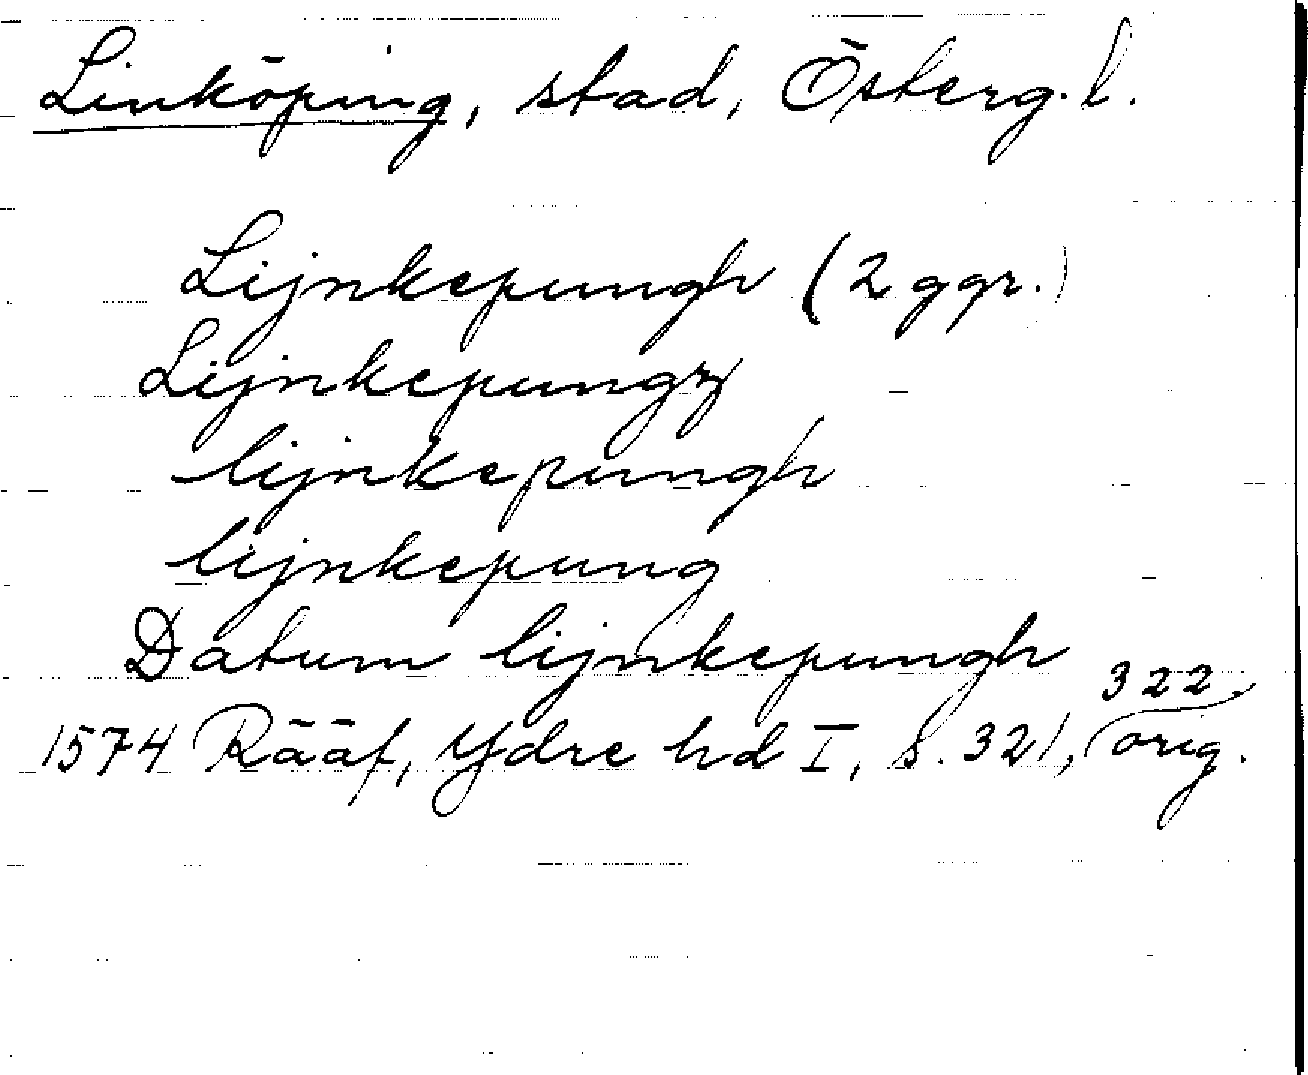 Linköping, stad, Österg. l.
Lijnkepungh (2 ggr.)
Lijnkepungz
lijnkepungh
lijnkepung
Datum lijnkepungh
322
1574 Rääf, Ydre hd I, s. 321, orig.